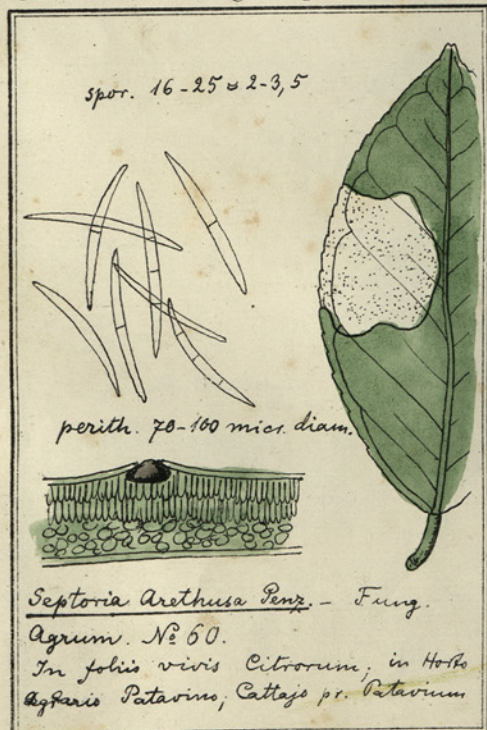 spor. 16-25 ≈ 2-3,5
perith. 70-100 micr. diam.
Septoria Arethusa Penz. - Fung.
Agrum. Nº 60.
In foliis vivis Citrorum; in Horto
Agrario Patavino, Cattajo pr. Patavium